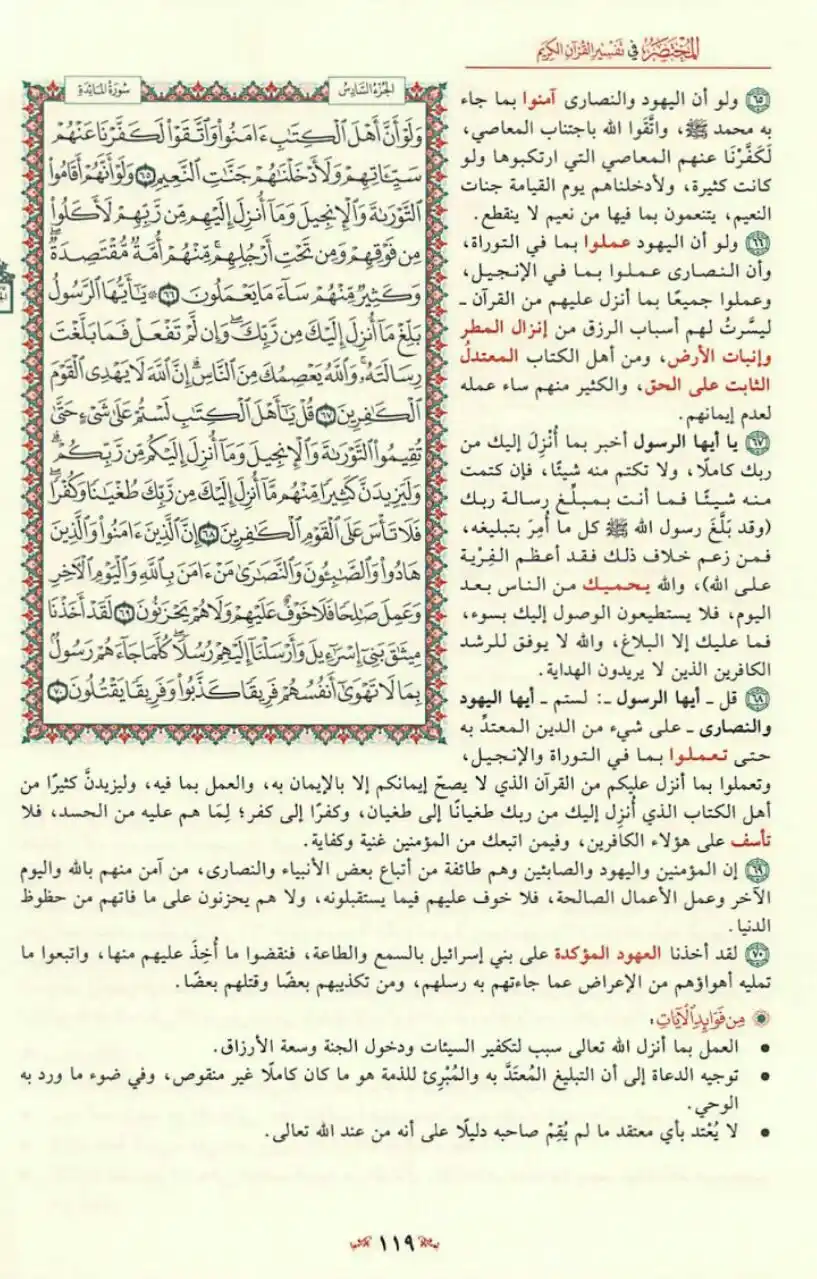 المختصر في تفسير القرآن الكريم
سورة المائدة
الجزء السادس
وَلَوْ أَنَّ أَهْلَ الْكِتَابِ ءَامَنُوا وَاتَّقَوْا لَكَفَّرْنَا عَنْهُمْ
سَيِّئَاتِهِمْ وَلَأَدْخَلْنَاهُمْ جَنَّاتِ النَّعِيمِ ٦٥ وَلَوْ أَنَّهُمْ أَقَامُوا
التَّوْرَىٰةَ وَالْإِنجِيلَ وَمَا أُنزِلَ إِلَيْهِم مِّن رَّبِّهِمْ لَأَكَلُوا
مِن فَوْقِهِمْ وَمِن تَحْتِ أَرْجُلِهِم ۚ مِّنْهُمْ أُمَّةٌ مُّقْتَصِدَةٌ ۖ
وَكَثِيرٌ مِّنْهُمْ سَاءَ مَا يَعْمَلُونَ ٦٦ ۞ يَا أَيُّهَا الرَّسُولُ
بَلِّغْ مَا أُنزِلَ إِلَيْكَ مِن رَّبِّكَ ۖ وَإِن لَّمْ تَفْعَلْ فَمَا بَلَّغْتَ
رِسَالَتَهُ ۚ وَاللَّهُ يَعْصِمُكَ مِنَ النَّاسِ ۗ إِنَّ اللَّهَ لَا يَهْدِي الْقَوْمَ
الْكَافِرِينَ ٦٧ قُلْ يَا أَهْلَ الْكِتَابِ لَسْتُمْ عَلَىٰ شَيْءٍ حَتَّىٰ
تُقِيمُوا التَّوْرَىٰةَ وَالْإِنجِيلَ وَمَا أُنزِلَ إِلَيْكُم مِّن رَّبِّكُمْ ۗ
وَلَيَزِيدَنَّ كَثِيرًا مِّنْهُم مَّا أُنزِلَ إِلَيْكَ مِن رَّبِّكَ طُغْيَانًا وَكُفْرًا ۖ
فَلَا تَأْسَ عَلَى الْقَوْمِ الْكَافِرِينَ ٦٨ إِنَّ الَّذِينَ ءَامَنُوا وَالَّذِينَ
هَادُوا وَالصَّابِئُونَ وَالنَّصَارَىٰ مَنْ ءَامَنَ بِاللَّهِ وَالْيَوْمِ الْآخِرِ
وَعَمِلَ صَالِحًا فَلَا خَوْفٌ عَلَيْهِمْ وَلَا هُمْ يَحْزَنُونَ ٦٩ لَقَدْ أَخَذْنَا
مِيثَاقَ بَنِي إِسْرَائِيلَ وَأَرْسَلْنَا إِلَيْهِمْ رُسُلًا ۖ كُلَّمَا جَاءَهُمْ رَسُولٌ
بِمَا لَا تَهْوَىٰ أَنفُسُهُمْ فَرِيقًا كَذَّبُوا وَفَرِيقًا يَقْتُلُونَ ٧٠
٦٥ ولو أن اليهود والنصارى آمنوا بما جاء
به محمد ﷺ، واتَّقَوا الله باجتناب المعاصي،
لَكَفَّرْنَا عنهم المعاصي التي ارتكبوها ولو
كانت كثيرة، ولأدخلناهم يوم القيامة جنات
النعيم، يتنعمون بما فيها من نعيم لا ينقطع.
٦٦ ولو أن اليهود عملوا بما في التوراة،
وأن النصارى عملوا بما في الإنجيل،
وعملوا جميعًا بما أنزل عليهم من القرآن ـ
ليسَّرتُ لهم أسباب الرزق من إنزال المطر
وإنبات الأرض، ومن أهل الكتاب المعتدلُ
الثابت على الحق، والكثير منهم ساء عمله
لعدم إيمانهم.
٦٧ يا أيها الرسول أخبر بما أُنْزِلَ إليك من
ربك كاملًا، ولا تكتم منه شيئًا، فإن كتمت
منه شيئًا فما أنت بمبلِّغ رسالة ربك
(وقد بَلَّغَ رسول الله ﷺ كل ما أُمِرَ بتبليغه،
فمن زعم خلاف ذلك فقد أعظم الفِرْية
على الله)، والله يحميك من الناس بعد
اليوم، فلا يستطيعون الوصول إليك بسوء،
فما عليك إلا البلاغ، والله لا يوفق للرشد
الكافرين الذين لا يريدون الهداية.
٦٨ قل ـ أيها الرسول ـ: لستم ـ أيها اليهود
والنصارى ـ على شيء من الدين المعتدِّ به
حتى تعملوا بما في التوراة والإنجيل،
وتعملوا بما أنزل عليكم من القرآن الذي لا يصحّ إيمانكم إلا بالإيمان به، والعمل بما فيه، وليزيدنَّ كثيرًا من
أهل الكتاب الذي أُنزِل إليك من ربك طغيانًا إلى طغيان، وكفرًا إلى كفر؛ لِمَا هم عليه من الحسد، فلا
تأسف على هؤلاء الكافرين، وفيمن اتبعك من المؤمنين غنية وكفاية.
٦٩ إن المؤمنين واليهود والصابئين وهم طائفة من أتباع بعض الأنبياء والنصارى، من آمن منهم بالله واليوم
الآخر وعمل الأعمال الصالحة، فلا خوف عليهم فيما يستقبلونه، ولا هم يحزنون على ما فاتهم من حظوظ
الدنيا.
٧٠ لقد أخذنا العهود المؤكدة على بني إسرائيل بالسمع والطاعة، فنقضوا ما أُخِذَ عليهم منها، واتبعوا ما
تمليه أهواؤهم من الإعراض عما جاءتهم به رسلهم، ومن تكذيبهم بعضًا وقتلهم بعضًا.
من فوائد الآيات:
• العمل بما أنزل الله تعالى سبب لتكفير السيئات ودخول الجنة وسعة الأرزاق.
• توجيه الدعاة إلى أن التبليغ المُعتَدَّ به والمُبْرِئ للذمة هو ما كان كاملًا غير منقوص، وفي ضوء ما ورد به
الوحي.
• لا يُعْتد بأي معتقد ما لم يُقِمْ صاحبه دليلًا على أنه من عند الله تعالى.
١١٩